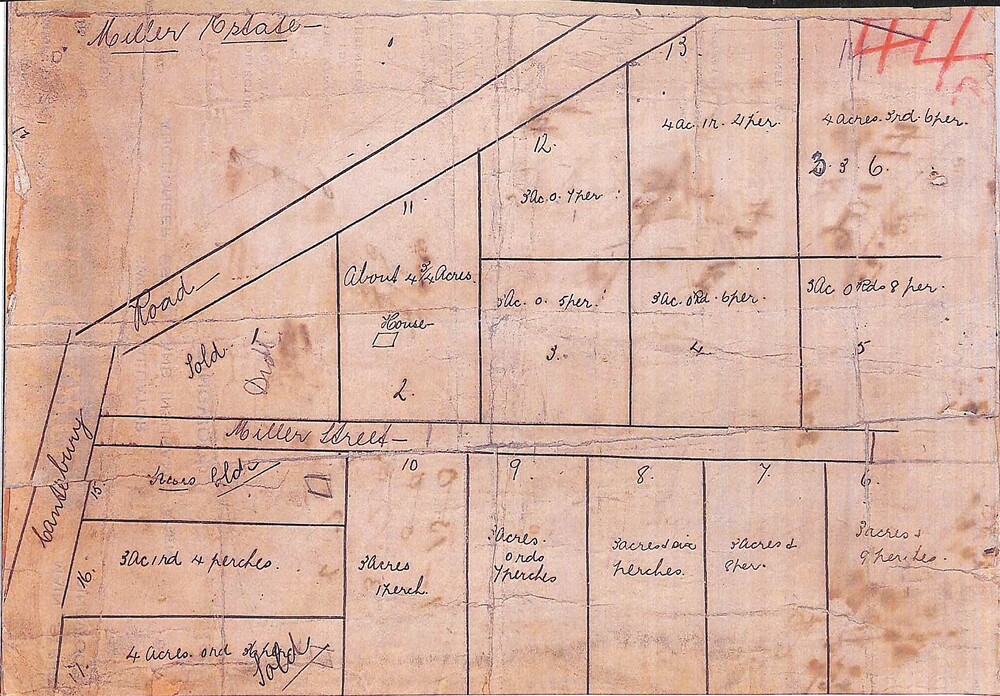 Miller Estate
44
13
12.
11
4 Ac. 1r. 4 per.
4 acres. 3rd. 6 per.
3. 3 6.
3 Ac. 0. 7 per
Road
About 4 3/4 Acres.
3 Ac. 0. 5 per.
3 Ac. 0 Rd. 6 per.
3 Ac 0 Rds 8 per.
House
Sold
3.
4
5
2.
Canterbury
Miller Street
Sold
15
10
9
8.
7
6.
3 Ac 1rd 4 perches.
16.
3 Acres
1 Perch.
3 Acres.
0 rds
7 perches
3 acres & six
perches.
3 acres &
8 per.
3 acres &
9 perches.
4 Acres. 0 rd
Sold
17.